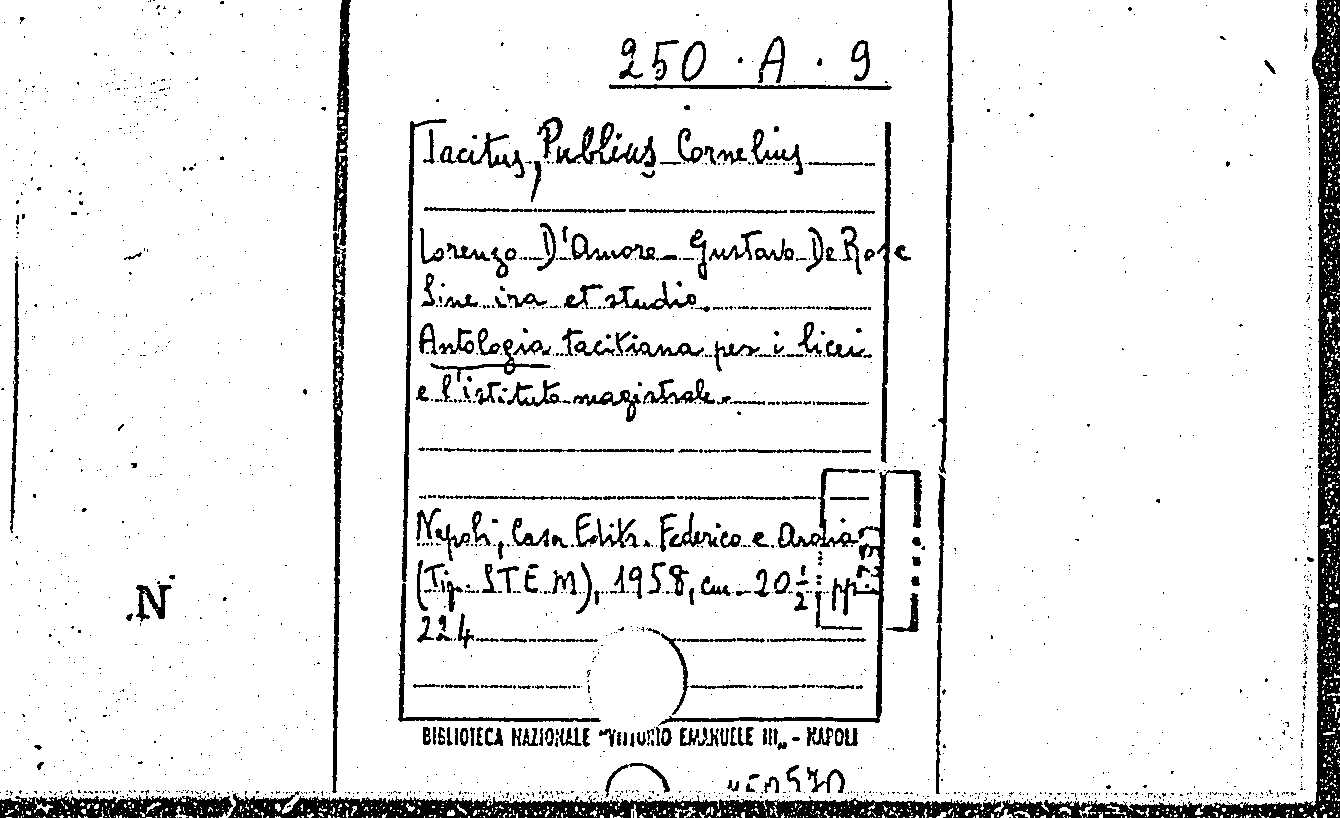 250 · A · 9
Tacitus, Publius Cornelius
Lorenzo D'Amore - Gustavo De Rose
Sine ira et studio.
Antologia tacitiana per i licei
e l'istituto magistrale.
Napoli, Casa Editr. Federico e Ardia
(Tip. S.T.E.M), 1958, cm. 20 1/2 pp.
224
N
BIBLIOTECA NAZIONALE "VITTORIO EMANUELE III„ - NAPOLI